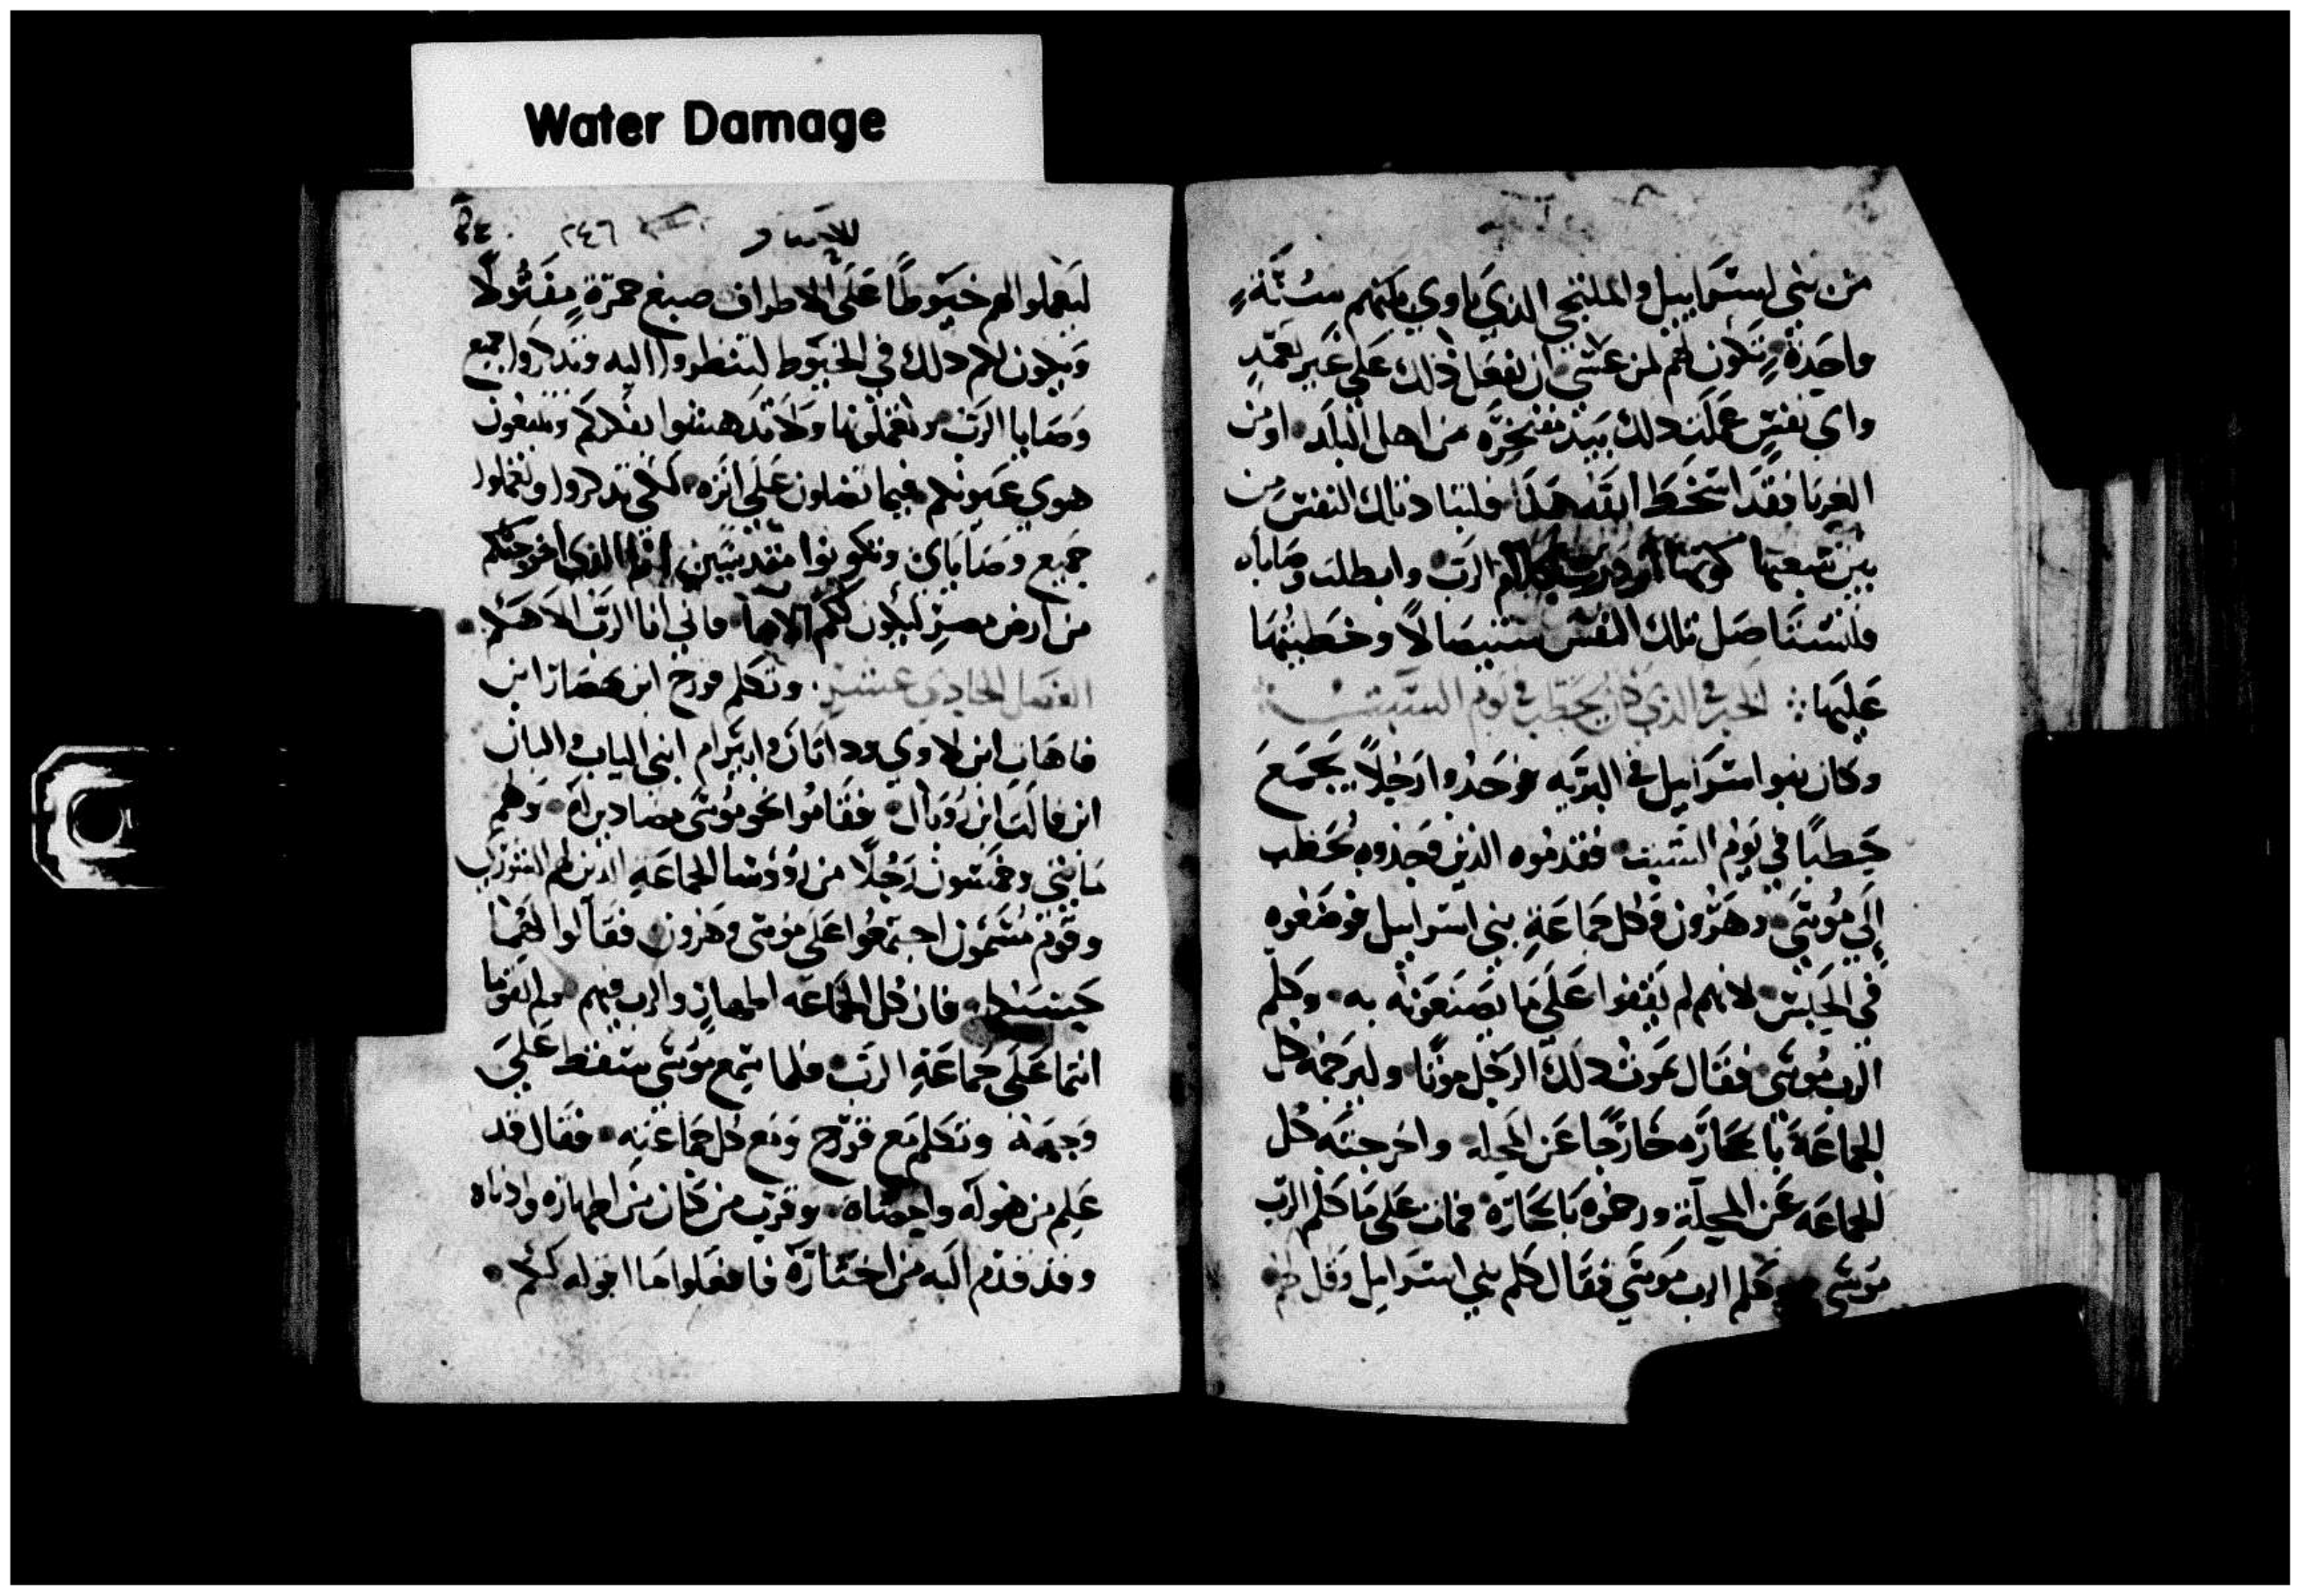 Water Damage
من بني اسراييل والملتجي الذي ياوي اليهم سنة
واحدة تكون لهم لمن عسى ان يفعل ذلك على غير تعمد
واي نفس عملت ذلك بيد مفتخره من اهل البلد او من
الغربا فقد اسخط الله هذا فلتباد تلك النفس من
بين شعبها الرب وابطلت وصاياه
ولتستاصل تلك النفس ستيصالا وخطيتها
عليها الخبر في الذي كان يحتطب في يوم السبت
وكان بنو اسراييل في البريه فوجدوا رجلا يجمع
حطبا في يوم السبت فقدموه الذين وجدوه يحتطب
الي موسى وهرون وكل جماعة بني اسراييل فوضعوه
في الحبس لانهم لم يقفوا على ما يصنعونه به وكلم
الرب موسى فقال يموت ذلك الرجل موتا وليرجمه كل
الجماعة بالحجاره خارجا عن المحله واخرجته كل
الجماعه عن المحلة ورجموه بالحجارة فمات على ما كلم الرب
موسى وكلم الرب موسى فقال كلم بني اسراييل وقل لهم
٢٤٦
ليعملوا لهم خيوطا على الاطراف صبغ حمرة مفتولا
ويكون لكم ذلك في الخيوط لتنظروا اليه وتذكروا جميع
وصايا الرب وتعملونها ولا تدهشوا بفكركم وتتبعون
هوي عيونكم فيما تضلون على اثره لكي تذكروا وتعملوا
جميع وصاياي وتكونوا مقدسين انا الذي اخرجتكم
من ارض مصر ليكون لكم الاها فاني انا الرب الاهكم
الفصل الحادي عشر وتكلم قورح ابن يصهار ابن
قاهات ابن لاوي وداثان وابيرام ابني الياب والبان
ابن فالت ابن روبال فقاموا نحو موسى مضادين له وهم
مايتي وخمسون رجلا من رؤوسا الجماعة الذين لهم الشورى
وقوم مسمون اجتمعوا على موسى وهرون فقالوا لهما
حسبكما فان كل الجماعه اطهار والرب فيهم ولم تقوما
انتما على جماعة الرب فلما سمع موسى سقط على
وجهه وتكلم مع قورح ومع كل جماعته فقال قد
علم من هو له واحصاه وقرب من كان من اطهاره وادناه
وقد قدم اليه من اختاره فافعلوا ما اقوله لكم